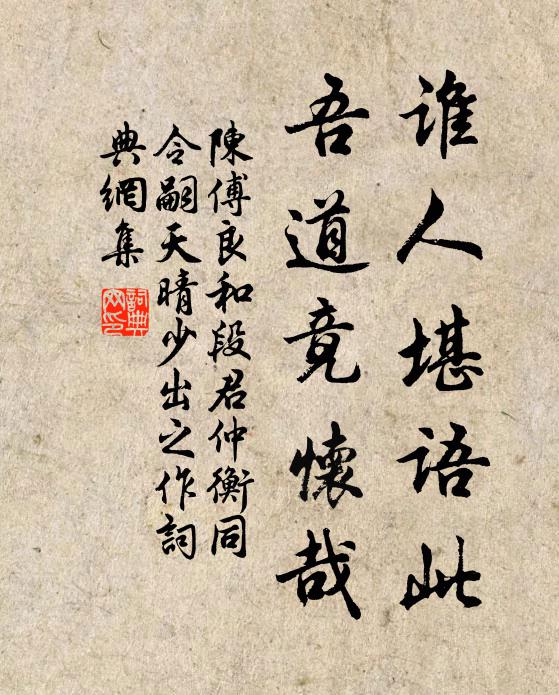 谁人堪语此
吾道竟懷哉
陳傅良和段君仲衡同
令嗣天晴少出之作詞
典網集
詞典
网印